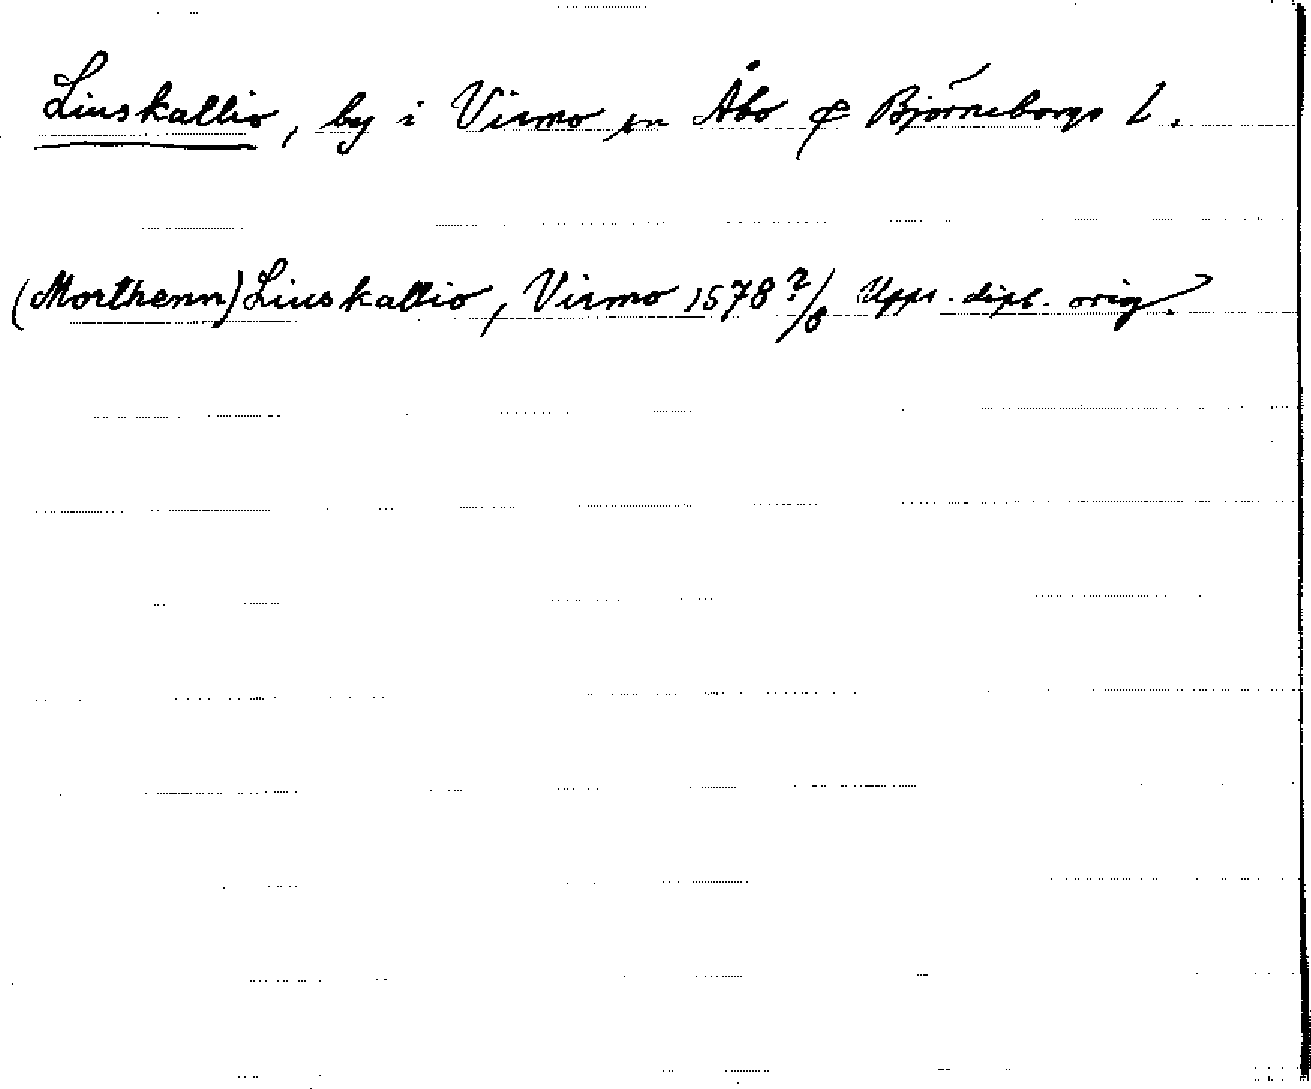 Liuskallio, by i Virmo sn Åbo & Björneborgs L.
(Morthenn) Liuskallio, Virmo 1578 2/6 Upps. dipl. orig.